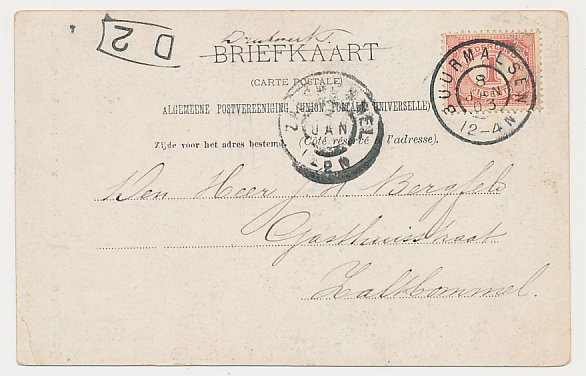 D 2
Drukwerk
BRIEFKAART
(CARTE POSTALE)
ALGEMEENE POSTVEREENIGING (UNION POSTALE UNIVERSELLE)
Zijde voor het adres bestemd. (Côté réservé à l'adresse).
BUURMALSEN
8
JAN
03
12-4N
ZALTBOMMEL
JAN
Den Heer J H Bergfeld
Gasthuisstraat
Zaltbommel.